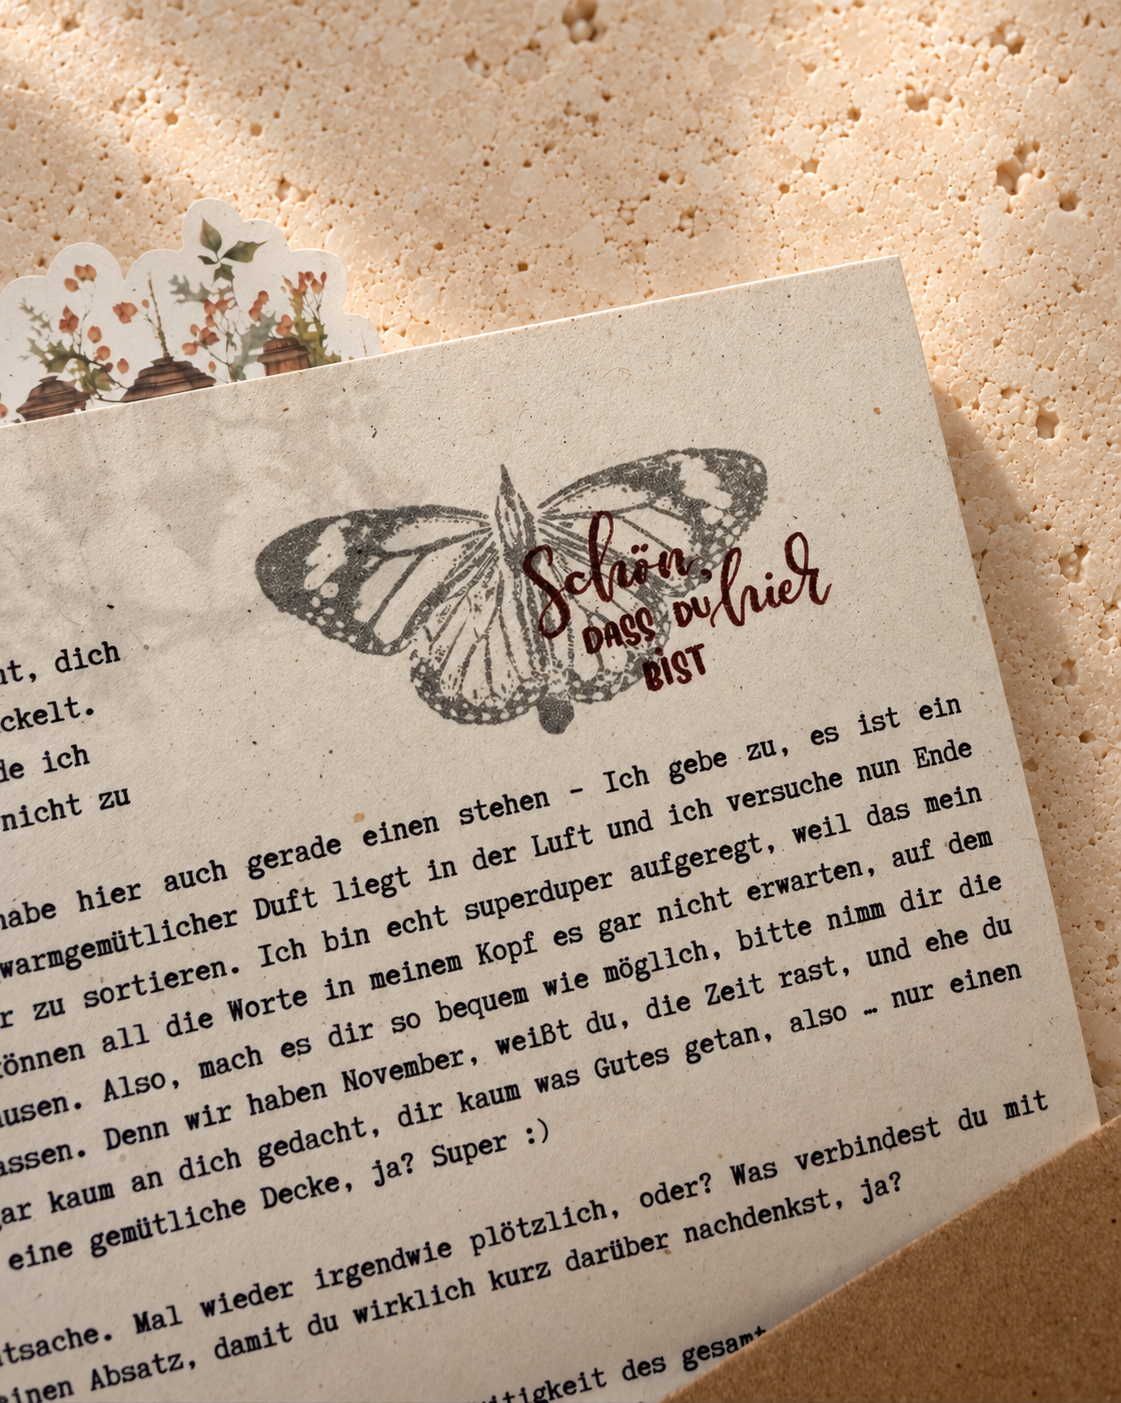 Schön,
DASS DU hier
BIST
nt, dich
ckelt.
de ich
nicht zu
habe hier auch gerade einen stehen – Ich gebe zu, es ist ein
warmgemütlicher Duft liegt in der Luft und ich versuche nun Ende
r zu sortieren. Ich bin echt superduper aufgeregt, weil das mein
können all die Worte in meinem Kopf es gar nicht erwarten, auf dem
usen. Also, mach es dir so bequem wie möglich, bitte nimm dir die
assen. Denn wir haben November, weißt du, die Zeit rast, und ehe du
gar kaum an dich gedacht, dir kaum was Gutes getan, also … nur einen
eine gemütliche Decke, ja? Super :)
tsache. Mal wieder irgendwie plötzlich, oder? Was verbindest du mit
einen Absatz, damit du wirklich kurz darüber nachdenkst, ja?
itigkeit des gesamt